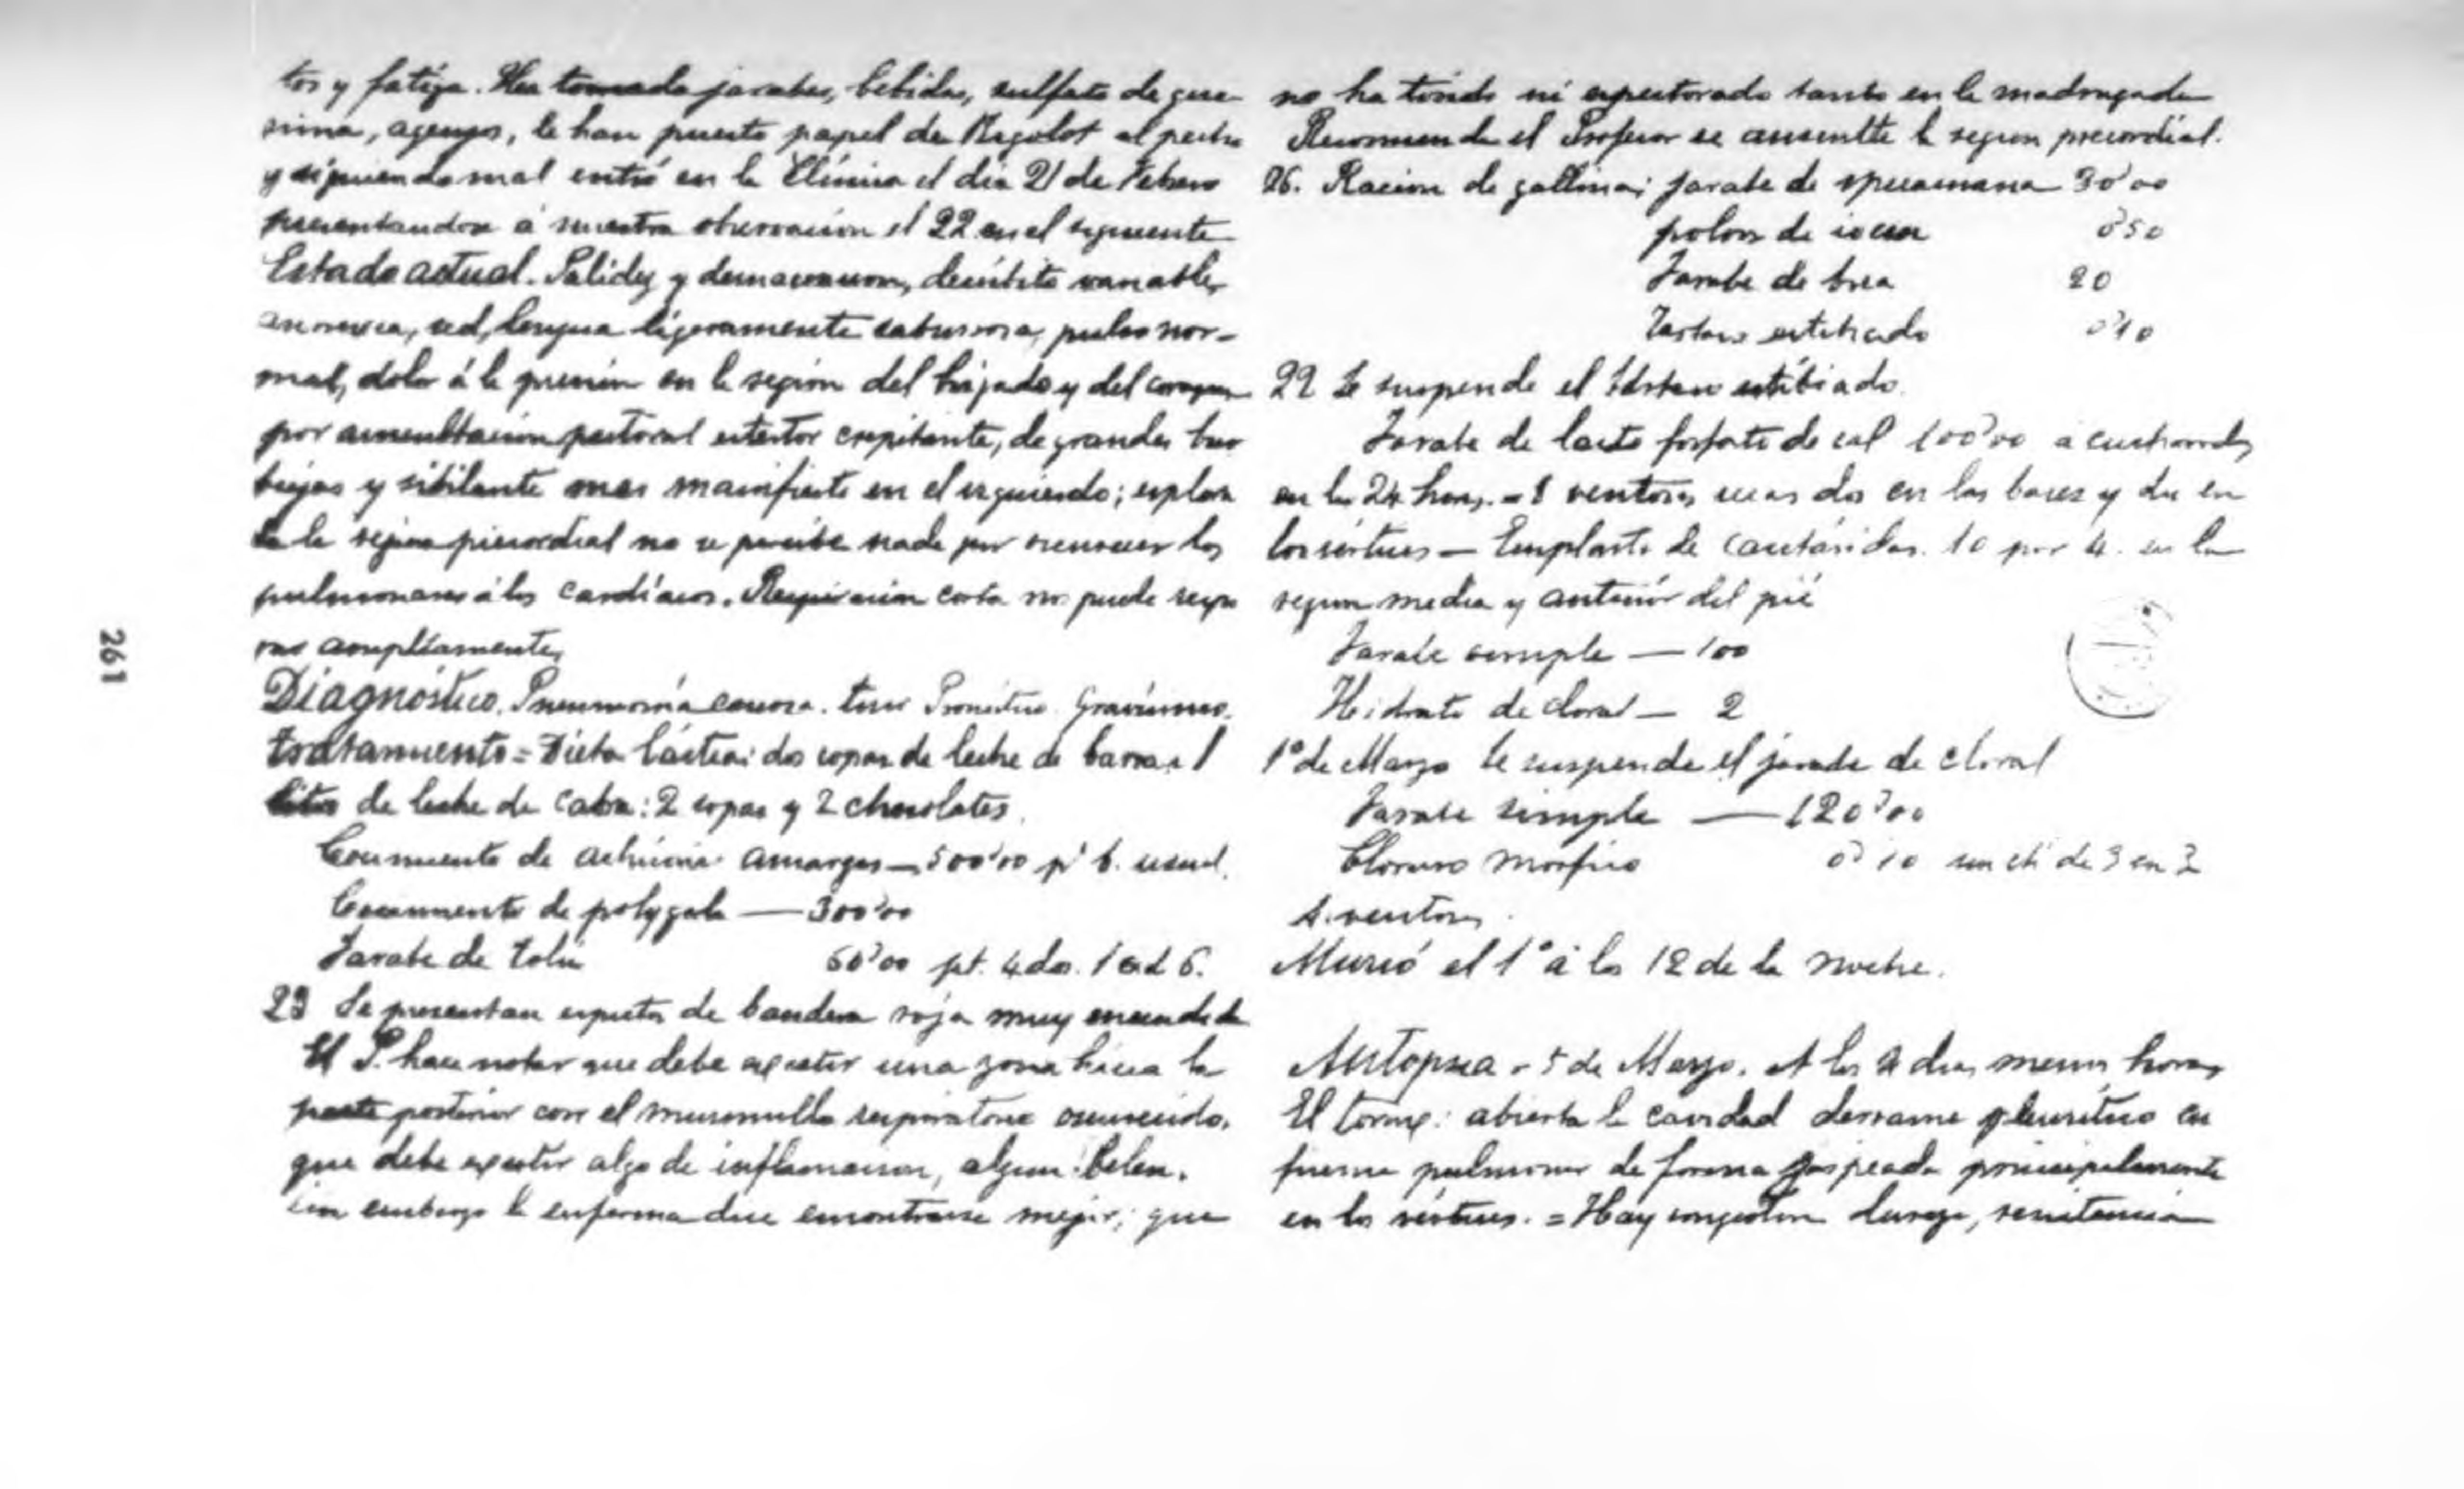 tos y fatiga. Ha tomado jarabes, bebidas, sulfato de que
nina, agenjos, le han puesto papel de Rigolot al pecho
y siguiendo mal entró en la Clínica el dia 21 de Febrero
presentandose á nuestra observacion el 22 en el siguiente
Estado actual. Palidez y demacracion, decúbito variable,
anorexia, sed, lengua ligeramente saburrosa, pulso nor-
mal, dolor á la presion en la region del higado y del corazon
por auscultacion pectoral estertor crepitante, de grandes bur
bujas y sibilante mas manifiesto en el izquierdo; explora
da la region precordial no se percibe nada por oscurecer los
pulmonares á los cardíacos. Respiracion corta no puede respi
rar ampliamente,
Diagnóstico. Pneumonía caseosa. Pronóstico. Gravísimo.
tratamiento = Dieta láctea: dos sopas de leche de burra 1
litro de leche de cabra: 2 sopas y 2 chocolates.
Cocimiento de achicoria amargas — 500'00 pª b. usual.
Cocimiento de polygala — 300'00
Jarabe de tolú 60'00 1 cad 6.
23 Se presentan esputos de bandera roja muy encendida
El P. hace notar que debe existir una zona hacia la
parte posterior con el murmullo respiratorio oscurecido,
que debe existir algo de inflamacion, algun belen.
sin embargo la enferma dice encontrarse mejor; que
no ha tosido ni expectorado tanto en la madrugada
Recomienda el Profesor se ausculte la region precordial.
26. Racion de gallina; jarabe de ipecacuana 30'00
polvos de 0'50
Jarabe de brea 20
Tartaro estibiado 0'10
22 Se suspende el tártaro estibiado.
Jarabe de lacto fosfato de cal 100'00 a cucharadas
en las 24 horas. = 8 ventosas secas dos en las bases y dos en
los vértices — Emplasto de cantáridas. 10 por 4. en la
region media y anterior del
Jarabe simple — 100
Hidrato de cloral — 2
1º de Marzo Se suspende el jarabe de cloral
Jarabe simple — 120'00
Cloruro morfico 0'10 de 3 en 3
4. ventosas.
Murió el 1º á las 12 de la noche.
Autopsia - 5 de Marzo. A los 4 dias menos horas
El torax: abierta la cavidad derrame pleuritico en
pulmonar de forma jaspeada principalmente
en los vértices. = Hay congestion dureza, renitencia
261